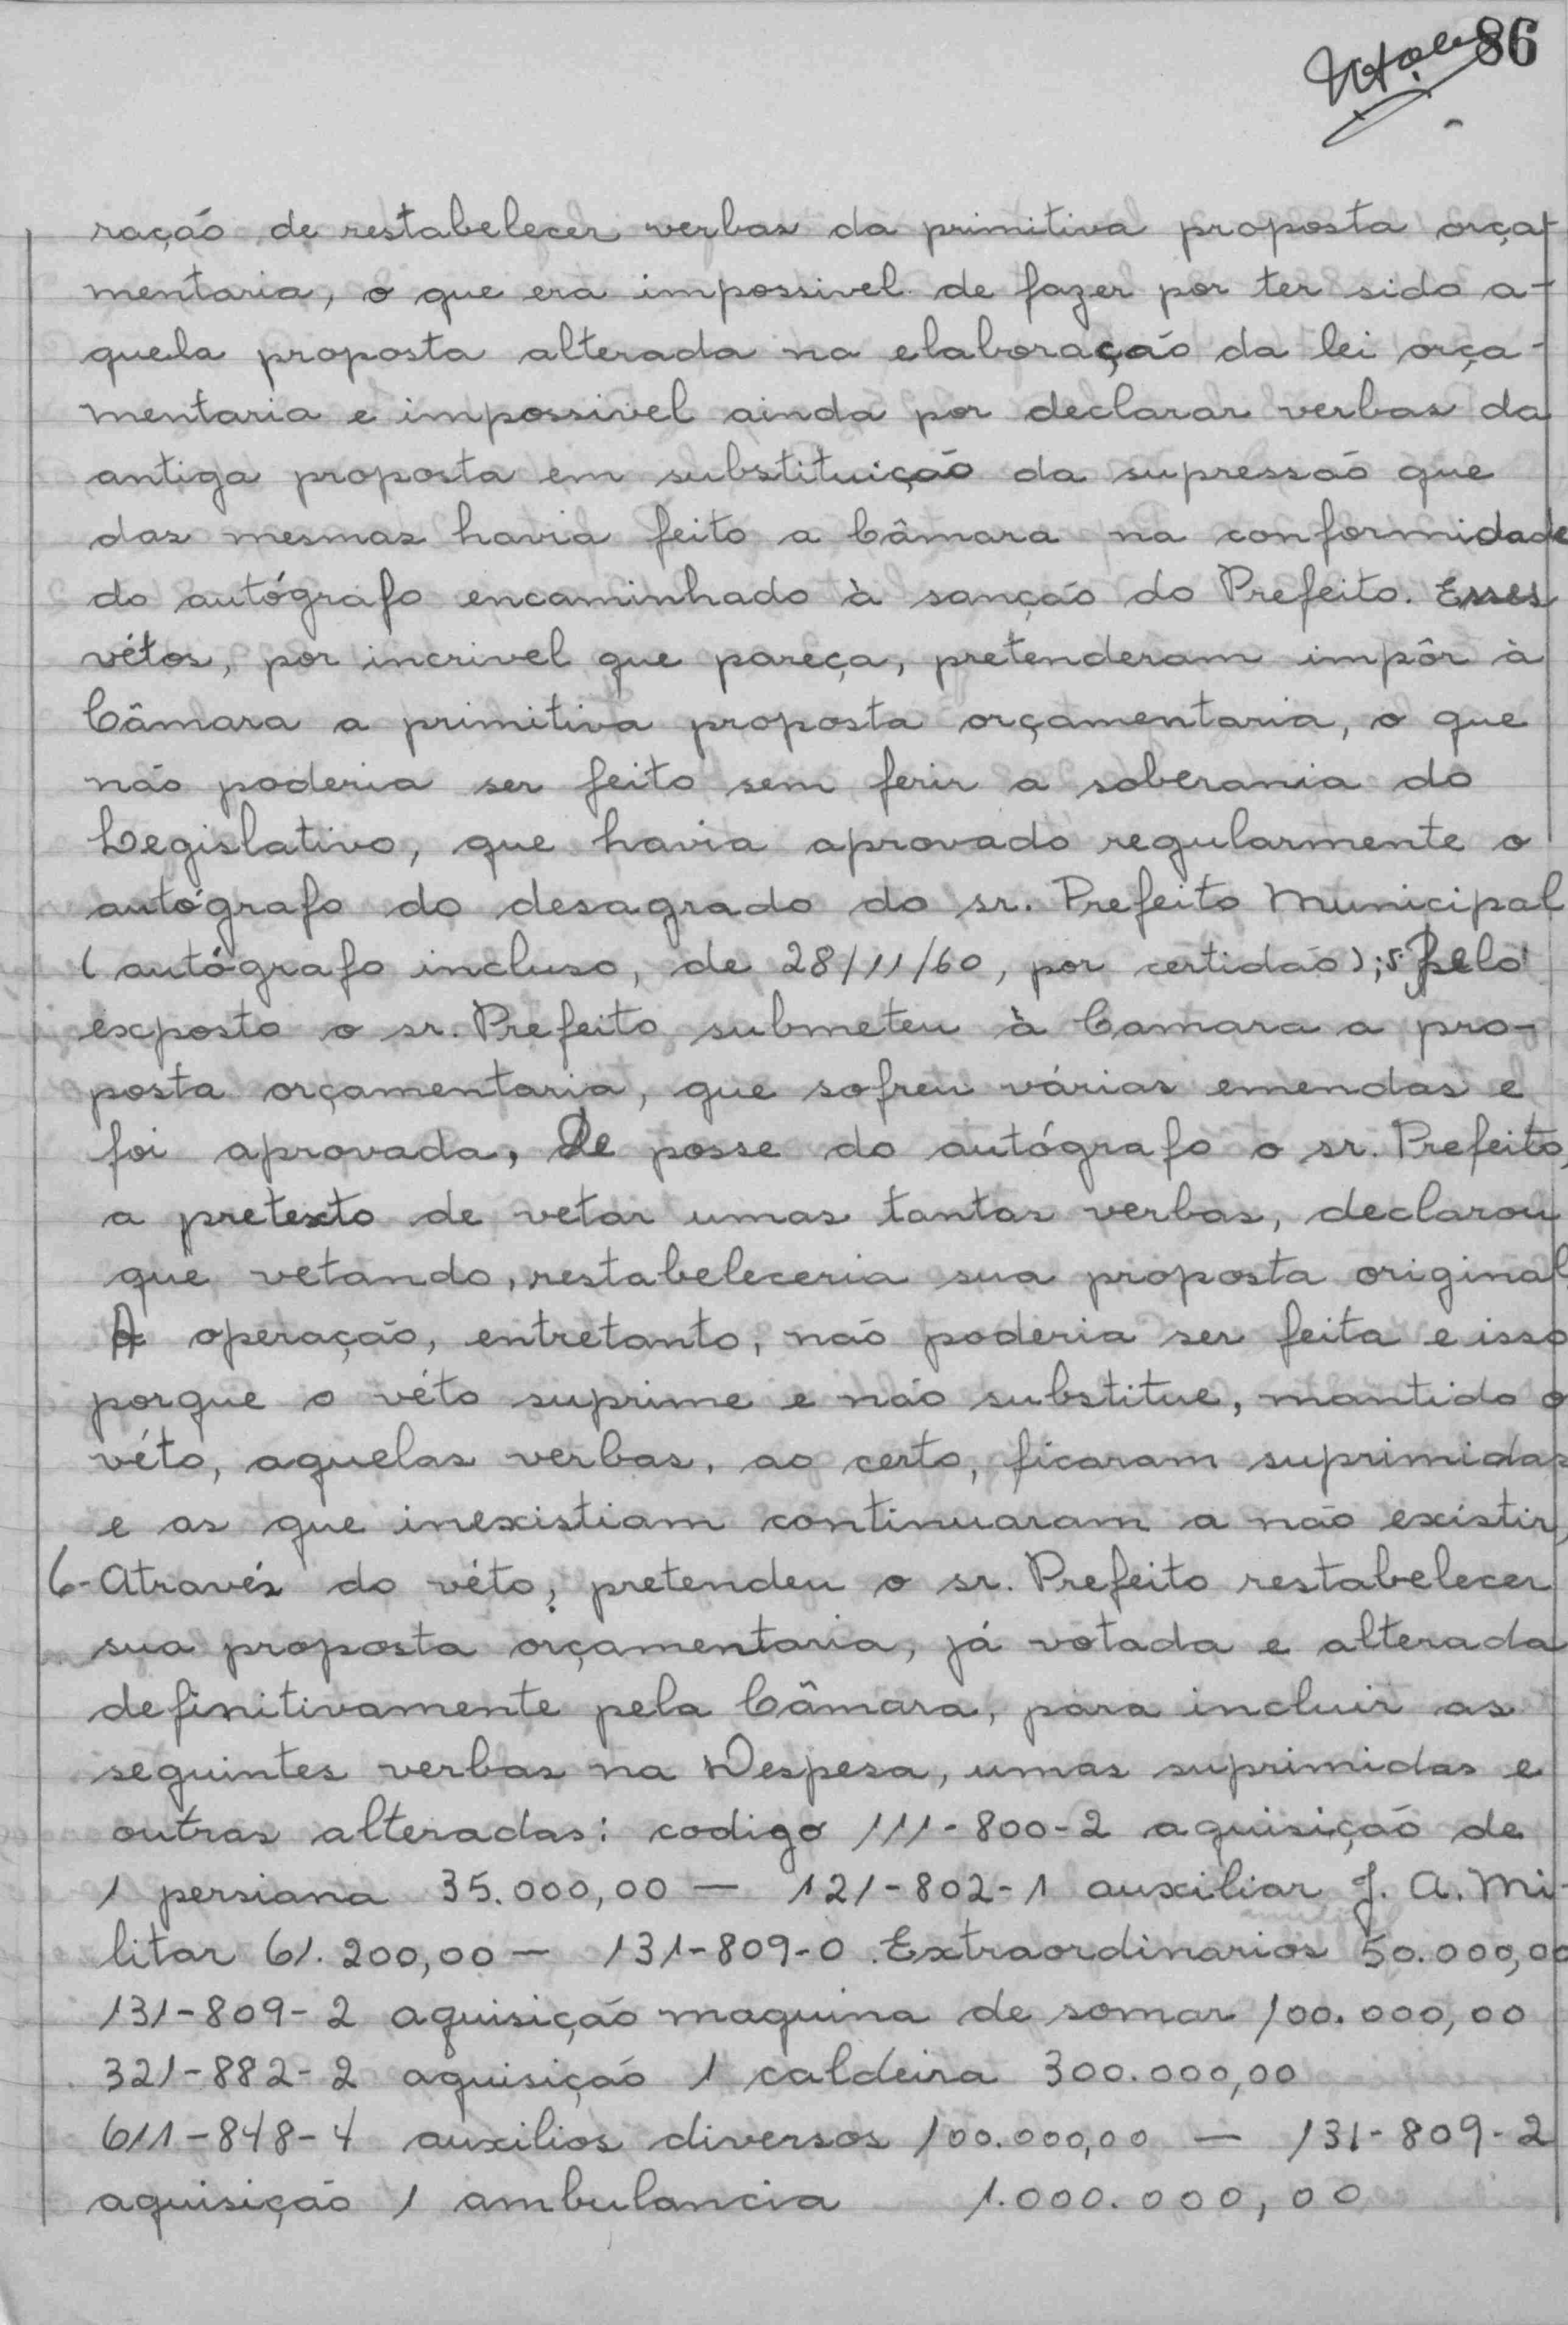 86
ração de restabelecer verbas da primitiva proposta orça-
mentaria, o que era impossivel de fazer por ter sido a-
quela proposta alterada na elaboração da lei orça-
mentaria e impossivel ainda por declarar verbas da
antiga proposta em substituição da supressão que
das mesmas havia feito a Câmara na conformidade
do autógrafo encaminhado à sanção do Prefeito. Esses
vétos, por incrivel que pareça, pretenderam impôr à
Câmara a primitiva proposta orçamentaria, o que
não poderia ser feito sem ferir a soberania do
Legislativo, que havia aprovado regularmente o
autógrafo do desagrado do sr. Prefeito Municipal
(autógrafo incluso, de 28/11/60, por certidão); 5- Pelo
exposto o sr. Prefeito submeteu à Camara a pro-
posta orçamentaria, que sofreu várias emendas e
foi aprovada, De posse do autógrafo o sr. Prefeito,
a pretexto de vetar umas tantas verbas, declarou
que vetando, restabeleceria sua proposta original
A operação, entretanto, não poderia ser feita e isso
porque o véto suprime e não substitue, mantido o
véto, aquelas verbas, ao certo, ficaram suprimidas
e as que inexistiam continuaram a não existir,
6- Através do véto, pretendeu o sr. Prefeito restabelecer
sua proposta orçamentaria, já votada e alterada
definitivamente pela Câmara, para incluir as
seguintes verbas na Despesa, umas suprimidas e
outras alteradas: codigo 111-800-2 aquisição de
1 persiana 35.000,00 — 121-802-1 auxiliar J. A. Mi-
litar 61.200,00 — 131-809-0 Extraordinarios 50.000,00
131-809-2 aquisição maquina de somar 100.000,00
321-882-2 aquisição 1 caldeira 300.000,00
611-848-4 auxilios diversos 100.000,00 — 131-809-2
aquisição 1 ambulancia 1.000.000,00